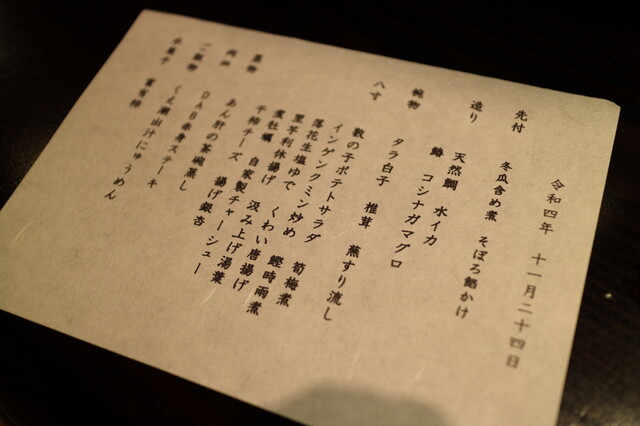 令和四年 十一月二十四日
先付
冬瓜含め煮 そぼろ餡かけ
造り
天然鯛 水イカ
鰆 コシナガマグロ
椀物
タラ白子 椎茸 蕪すり流し
八寸
数の子ポテトサラダ
インゲンクミン炒め 筍梅煮
落花生塩ゆで 鰹時雨煮
里芋利休揚げ くわい唐揚げ
牡蠣 汲み上げ湯葉
干柿チーズ 自家製チャーシュー
蒸物
あん肝の茶碗蒸し 揚げ銀杏
肉皿
DAB赤身ステーキ
ご飯物
くえ潮出汁にゅうめん
水菓子
富有柿